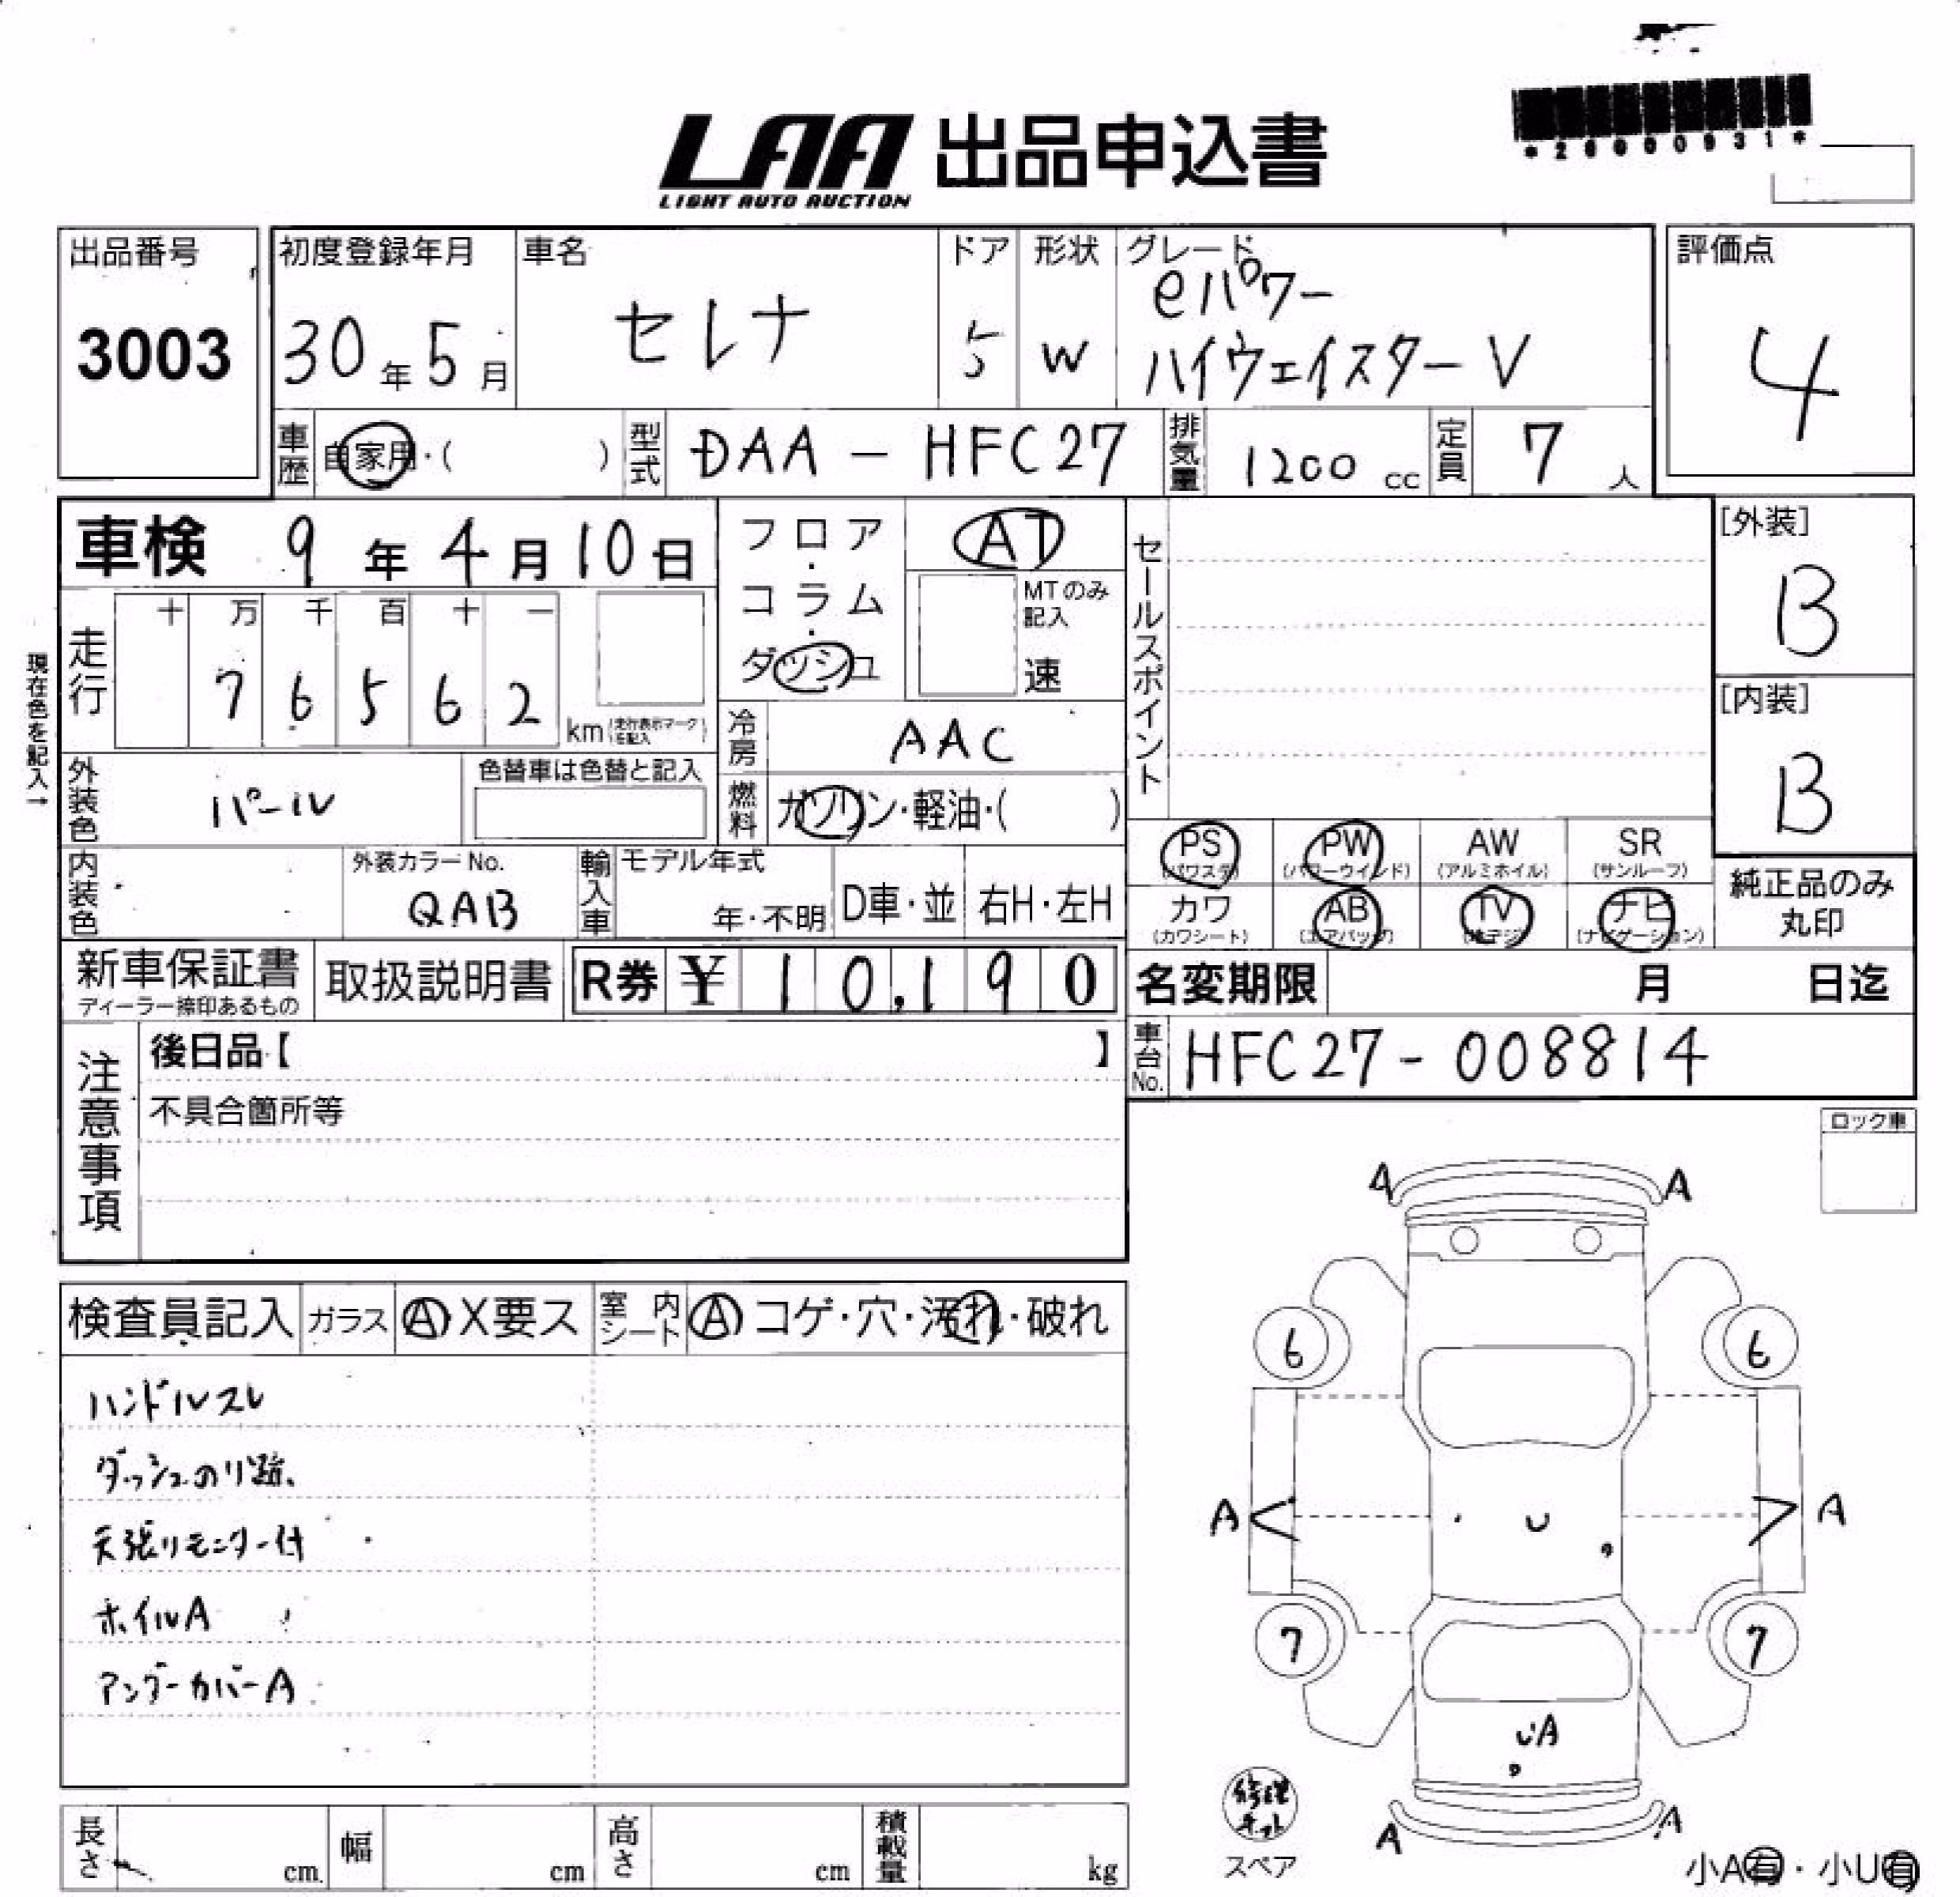 *26000931*
LAA 出品申込書
LIGHT AUTO AUCTION
出品番号 3003
初度登録年月 30年5月
車名 セレナ
ドア 5
形状 W
グレード eパワー
ハイウェイスターV
評価点 4
車歴 自家用・( )
型式 DAA-HFC27
排気量 1200cc
定員 7人
車検 9年4月10日
フロア・コラム・ダッシュ
AT
MTのみ記入
速
セールスポイント
[外装] B
現在色を記入→
走行 十万千百十一
76562 km (走行表示マークを記入)
[内装] B
冷房 AAC
燃料 ガソリン・軽油・( )
外装色 パール
色替車は色替と記入
PS (パワステ) PW (パワーウインド) AW (アルミホイル) SR (サンルーフ)
カワ (カワシート) AB (エアバッグ) TV (地デジ) ナビ (ナビゲーション)
純正品のみ
丸印
内装色
外装カラーNo. QAB
輸入車 モデル年式 年・不明 D車・並 右H・左H
新車保証書
ディーラー捺印あるもの
取扱説明書
R券 ¥10,190
名変期限 月 日迄
車台No. HFC27-008814
注意事項
後日品【 】
不具合箇所等
ロック車
検査員記入 ガラス A X要ス 室内シート A コゲ・穴・汚れ・破れ
ハンドルスレ
ダッシュのリ跡、
天張りモニター付
ホイルA
アンダーカバーA
A A
6 6
A U A
7 7
UA
A A
修理キット
スペア
小A有・小U有
長さ cm 幅 cm 高さ cm 積載量 kg